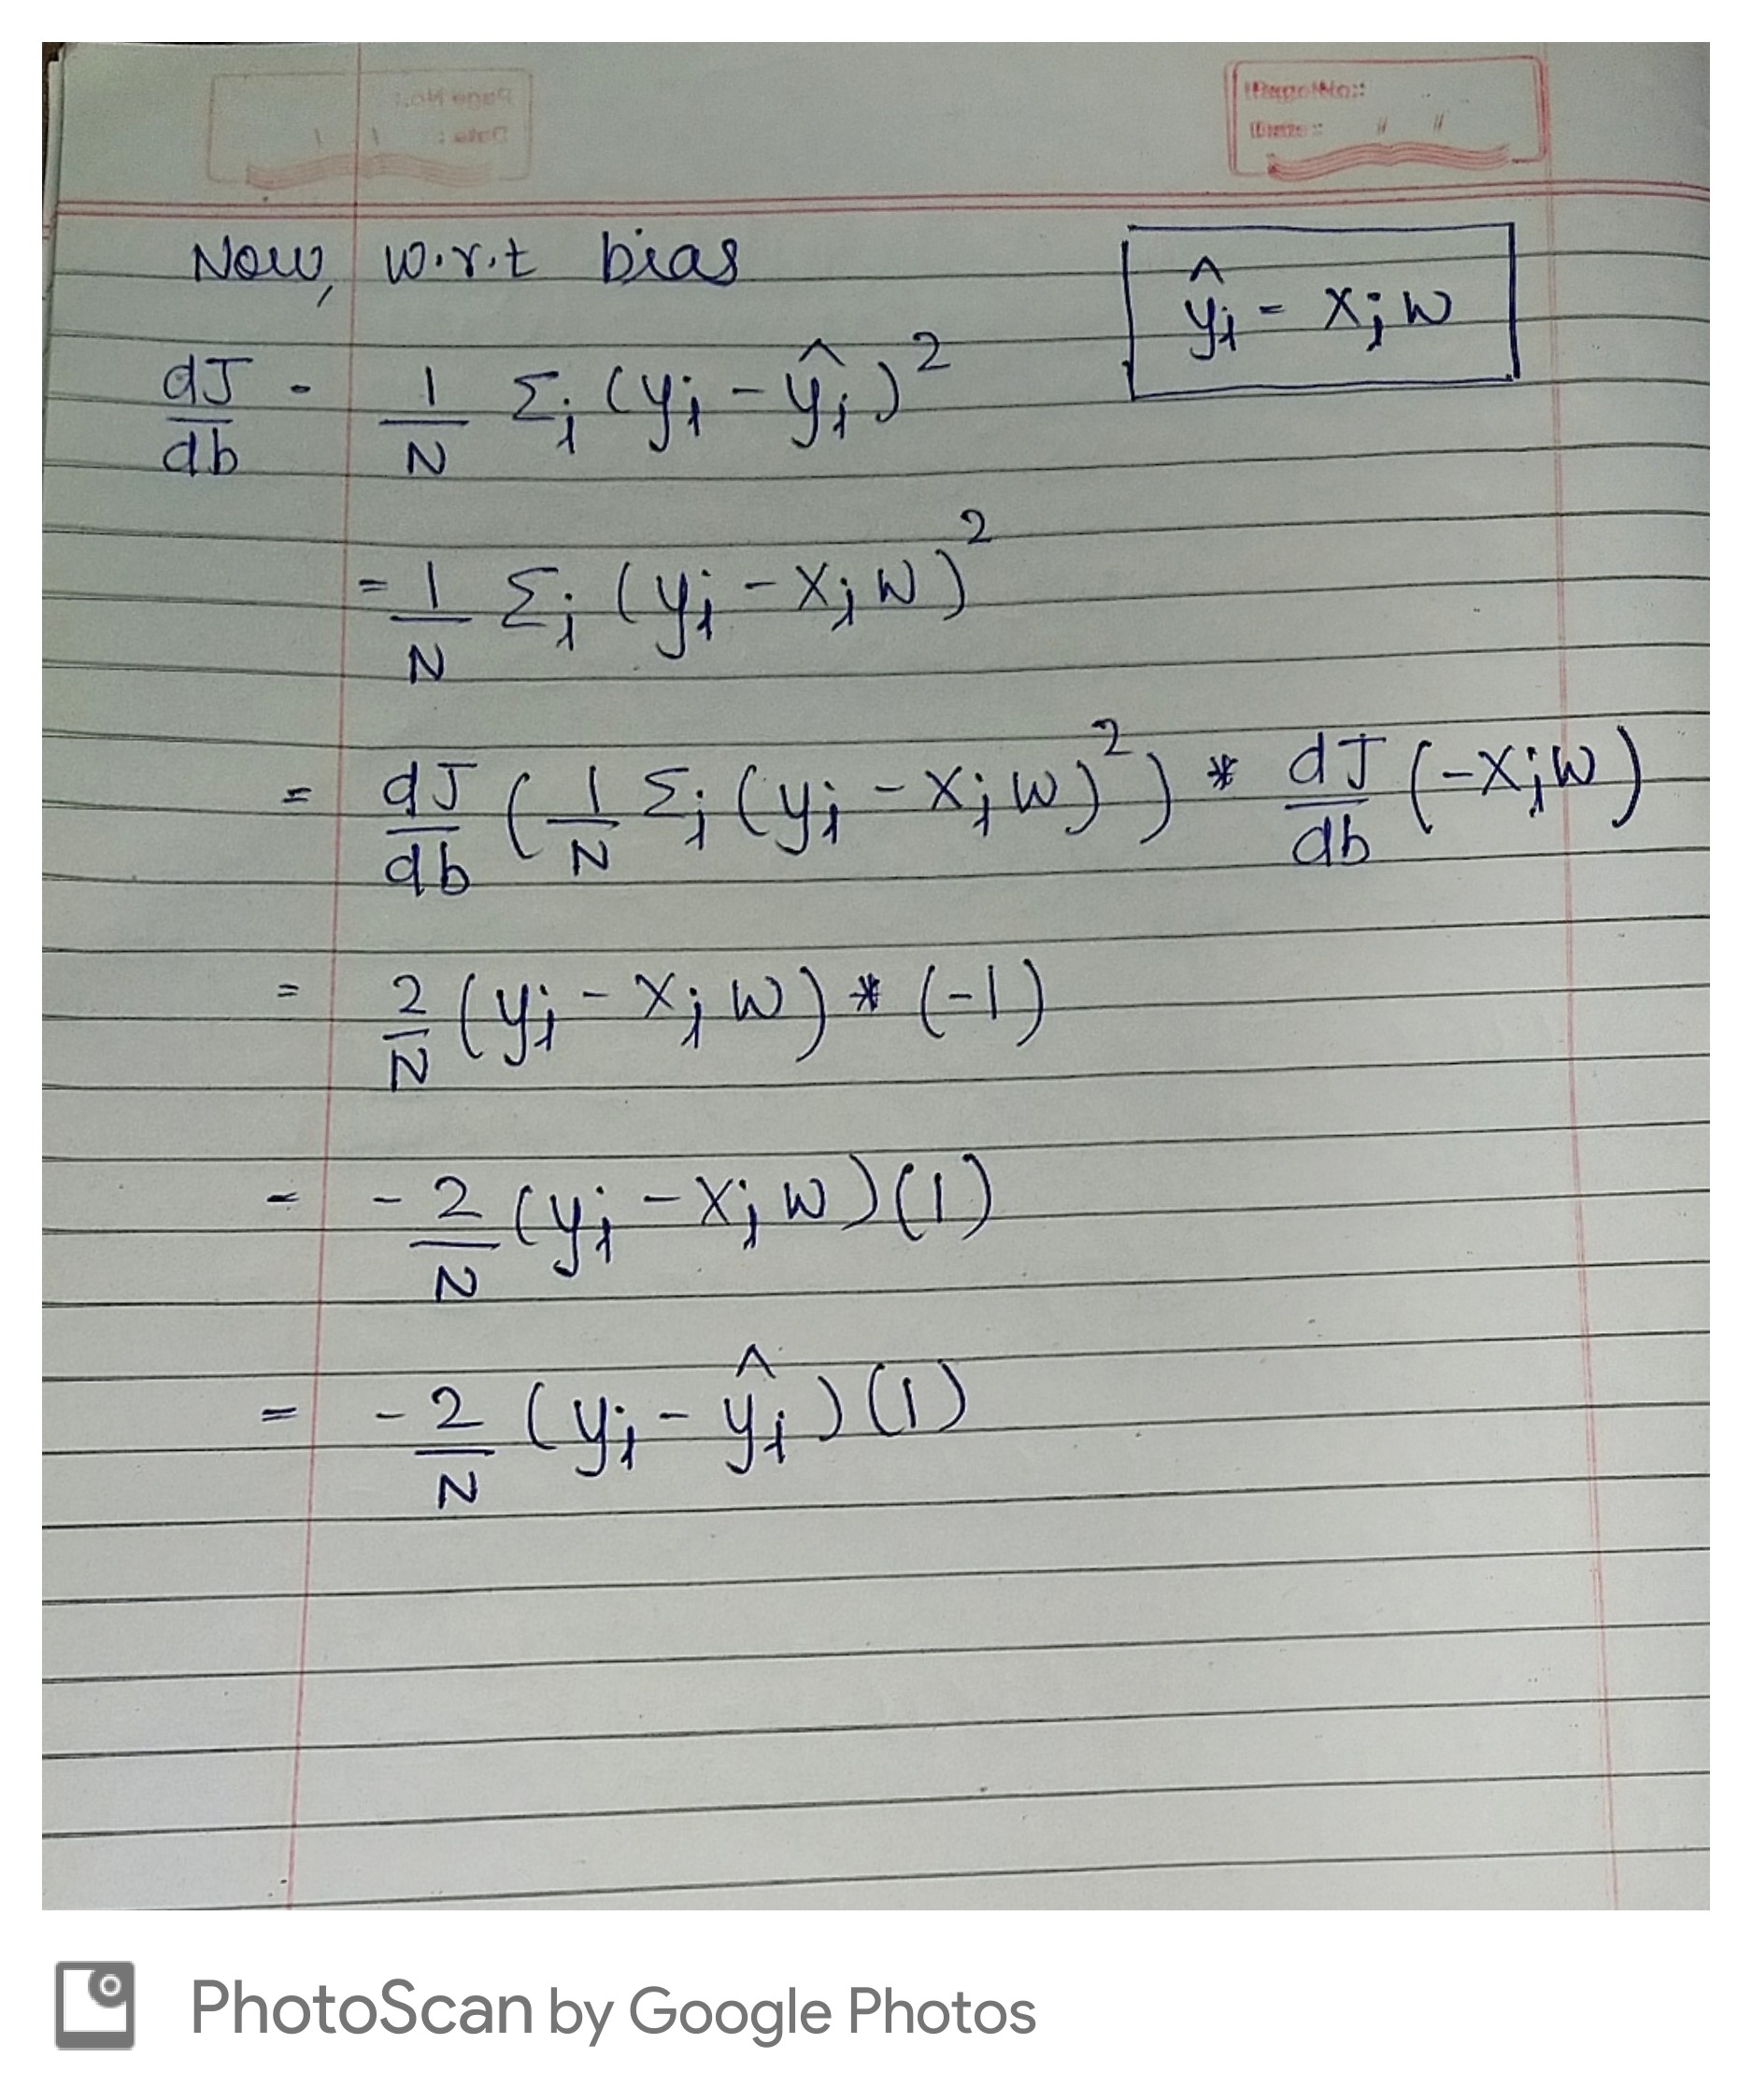 Page No.:
Date: / /
Now, w.r.t bias
ŷi = Xi W
dJ/db = 1/N Σi (yi - ŷi)²
= 1/N Σi (yi - Xi W)²
= dJ/db (1/N Σi (yi - Xi W)²) * dJ/db (-Xi W)
= 2/N (yi - Xi W) * (-1)
= -2/N (yi - Xi W) (1)
= -2/N (yi - ŷi) (1)
PhotoScan by Google Photos